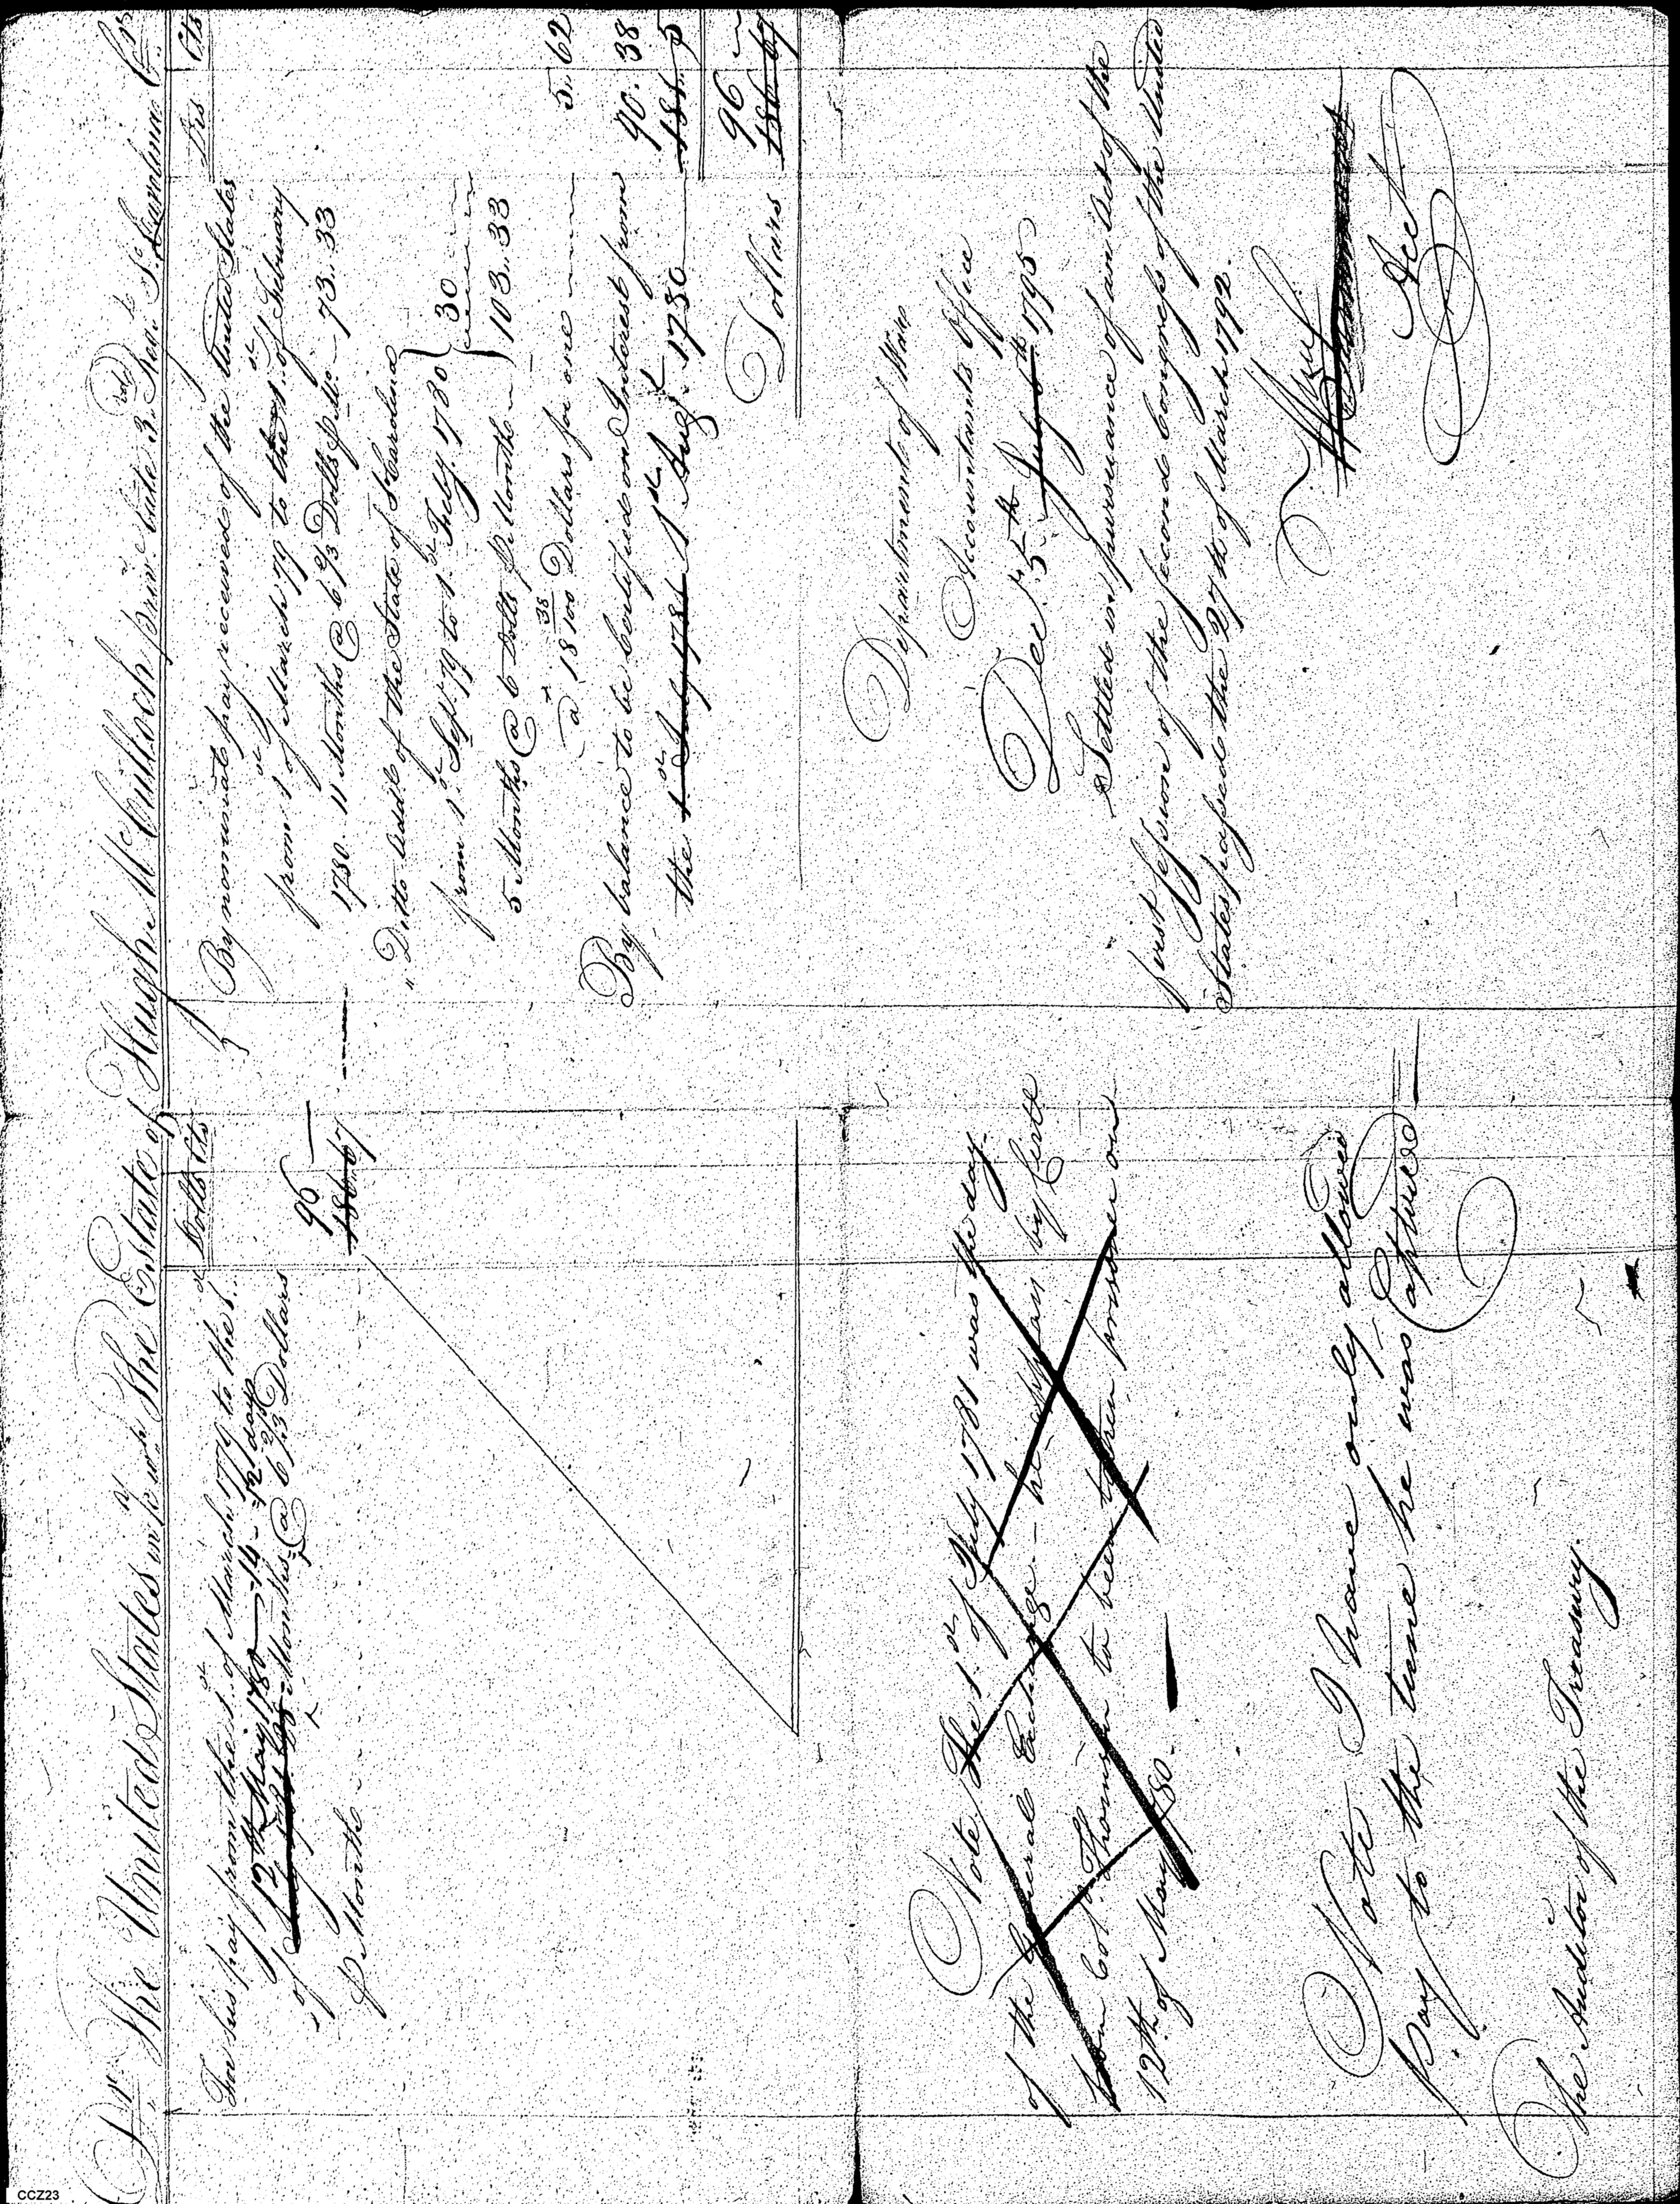 Dr. The United States in acct. with The Estate of Hugh McCulloch private late 3. Regt. So. Carolina Cr.
Dolls Cts
For his pay from the 1st. of March 1779 to the 1st.
of 12th May 1780 14 12 days
Months @ 6 2/3 Dollars
96 —
186.67
⅌ Month
Drs Cts
By nominal pay received of the United States
from 1st of March 79 to the 1st. of February
1780. 11 Months @ 6 2/3 Dolls ⅌ Mo. 73..33
" Ditto of the State of S Carolina
from 1st Sept. 79 to 1st July 1780 } 30
5 Months @ 6 Dolls ⅌ Month } 103..33
@ 18 38/100 Dollars for one
5. 62
By balance to be certified on Interest from
90. 38
the 1st July 1781 1st Aug. 1780
Dollars
96
186.67
Note/ The 1st of July 1781 was the day
of the General Exchange - he by Certe
from Col. Thomson to been taken prisoner on
12th of May 1780.
Note I have only allowed
Pay to the time he was captured
The Auditor of the Treasury.
Department of War
Accountants Office
Dec. 5th July 6th 1795
Settled in pursuance of an Act of the
first session of the second Congress of the United
States passed the 27th of March 1792.
Acct
CCZ23